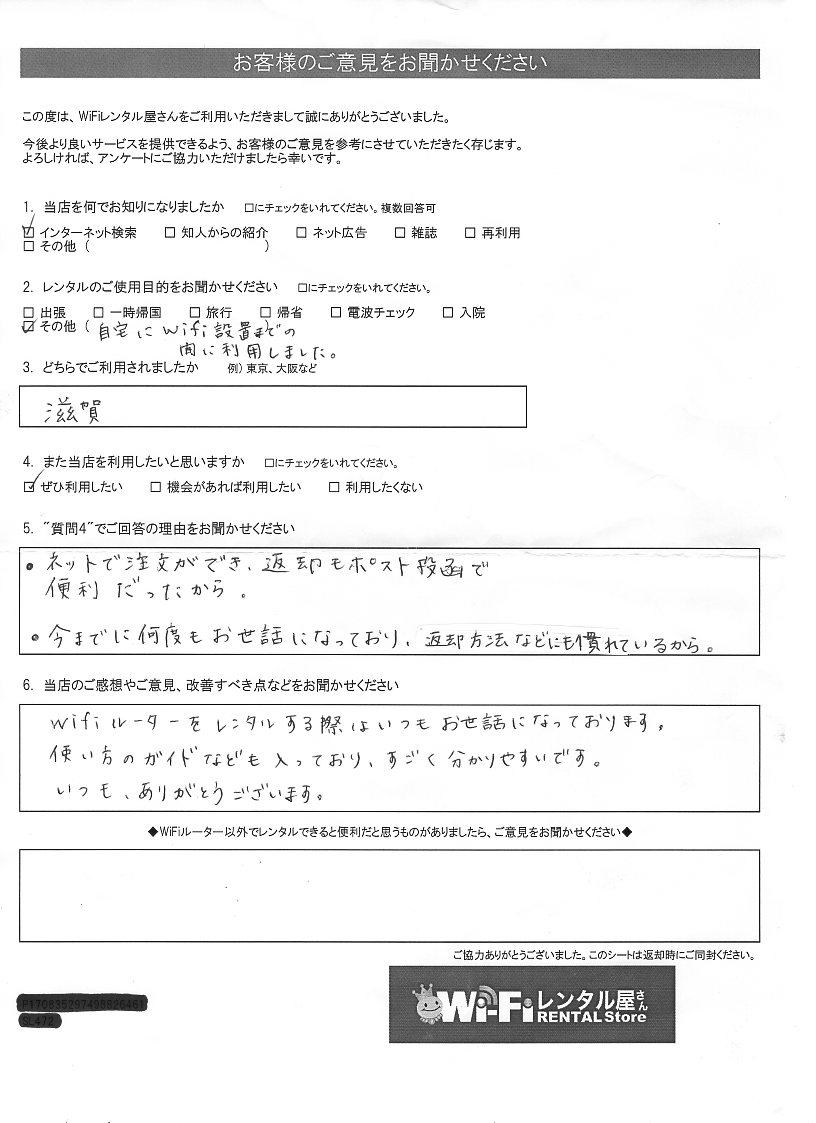 お客様のご意見をお聞かせください
この度は、WiFiレンタル屋さんをご利用いただきまして誠にありがとうございました。
今後より良いサービスを提供できるよう、お客様のご意見を参考にさせていただきたく存じます。
よろしければ、アンケートにご協力いただけましたら幸いです。
1. 当店を何でお知りになりましたか □にチェックをいれてください。複数回答可
☑ インターネット検索 □ 知人からの紹介 □ ネット広告 □ 雑誌 □ 再利用
□ その他 ( )
2. レンタルのご使用目的をお聞かせください □にチェックをいれてください。
□ 出張 □ 一時帰国 □ 旅行 □ 帰省 □ 電波チェック □ 入院
☑ その他 ( 自宅にWifi設置までの )
間に利用しました。
3. どちらでご利用されましたか 例) 東京、大阪など
滋賀
4. また当店を利用したいと思いますか □にチェックをいれてください。
☑ ぜひ利用したい □ 機会があれば利用したい □ 利用したくない
5. "質問4"でご回答の理由をお聞かせください
• ネットで注文ができ、返却もポスト投函で
便利だったから。
• 今までに何度もお世話になっており、返却方法などにも慣れているから。
6. 当店のご感想やご意見、改善すべき点などをお聞かせください
Wifiルーターをレンタルする際はいつもお世話になっております。
使い方のガイドなども入っており、すごく分かりやすいです。
いつも、ありがとうございます。
◆WiFiルーター以外でレンタルできると便利だと思うものがありましたら、ご意見をお聞かせください◆
ご協力ありがとうございました。このシートは返却時にご同封ください。
Wi-Fiレンタル屋さん
RENTAL Store
SL472